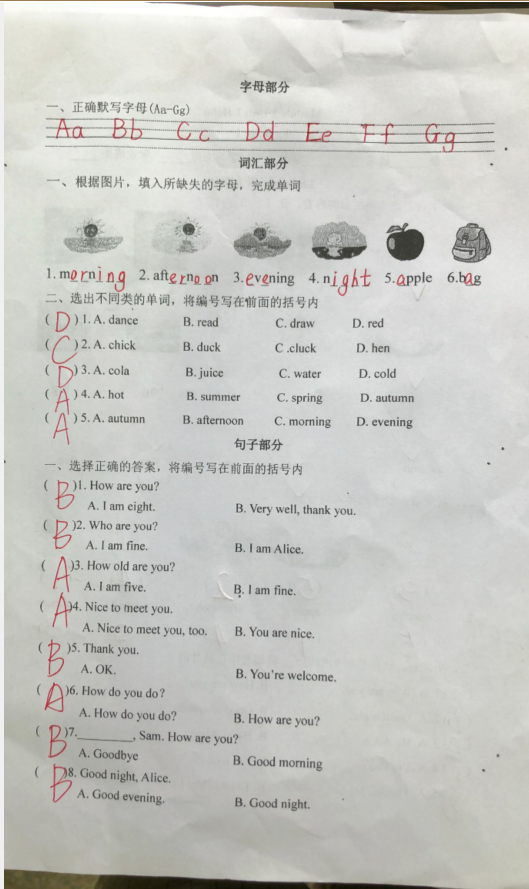 字母部分
一、正确默写字母(Aa-Gg)
Aa Bb Cc Dd Ee Ff Gg
词汇部分
一、根据图片，填入所缺失的字母，完成单词
1. morning 2. afternoon 3. evening 4. night 5. apple 6.bag
二、选出不同类的单词，将编号写在前面的括号内
( D ) 1. A. dance B. read C. draw D. red
( C ) 2. A. chick B. duck C .cluck D. hen
( D ) 3. A. cola B. juice C. water D. cold
( A ) 4. A. hot B. summer C. spring D. autumn
( A ) 5. A. autumn B. afternoon C. morning D. evening
句子部分
一、选择正确的答案，将编号写在前面的括号内
( B )1. How are you?
A. I am eight. B. Very well, thank you.
( B )2. Who are you?
A. I am fine. B. I am Alice.
( A )3. How old are you?
A. I am five. B. I am fine.
( A )4. Nice to meet you.
A. Nice to meet you, too. B. You are nice.
( B )5. Thank you.
A. OK. B. You're welcome.
( A )6. How do you do?
A. How do you do? B. How are you?
( B )7.________, Sam. How are you?
A. Goodbye B. Good morning
( B )8. Good night, Alice.
A. Good evening. B. Good night.